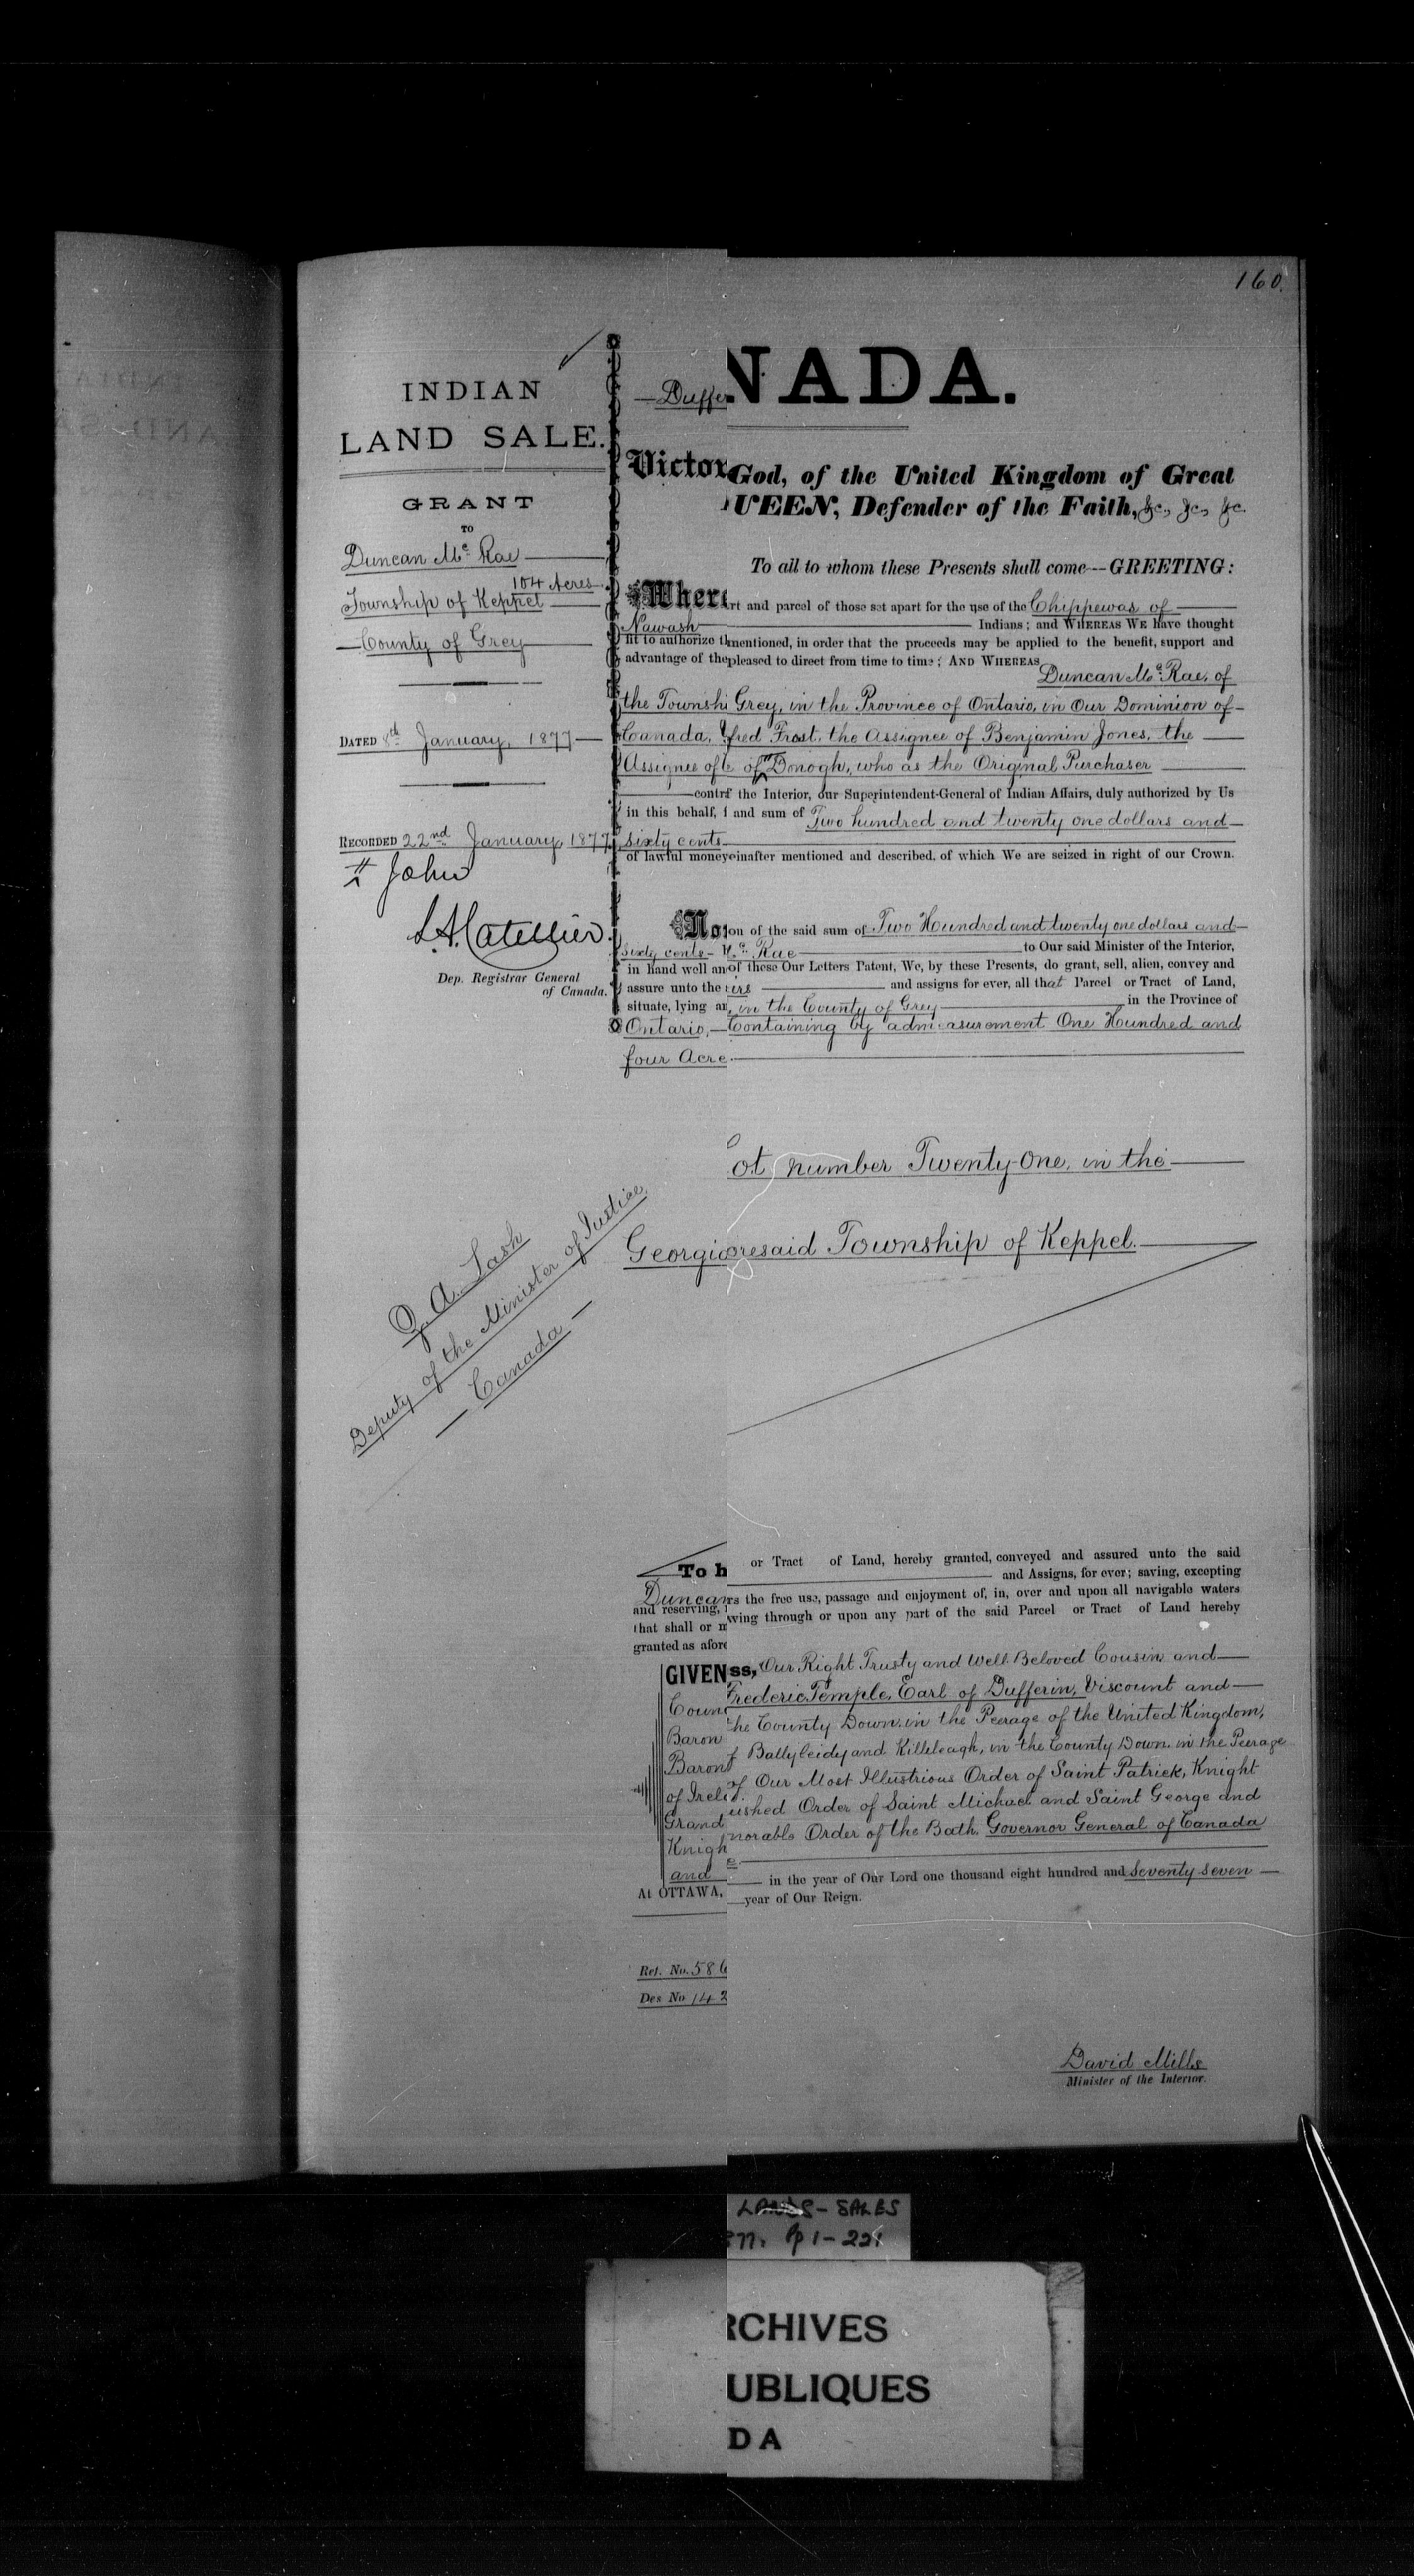 160.
INDIAN
LAND SALE.
GRANT
TO
Duncan Mc Rae
104 Acres
Township of Keppel
County of Grey
DATED 8th January, 1877
RECORDED 22nd January, 1877
John
L.A. Catellier
Dep. Registrar General
of Canada.
Z. A. Lash
Deputy of the Minister of Justice
Canada
NADA.
Duffer
Victor God, of the United Kingdom of Great
UEEN, Defender of the Faith, &c., &c., &c.
To all to whom these Presents shall come---GREETING:
Where rt and parcel of those set apart for the use of the Chippewas of
Nawash Indians; and WHEREAS WE have thought
fit to authorize th mentioned, in order that the proceeds may be applied to the benefit, support and
advantage of the pleased to direct from time to time; AND WHEREAS
Duncan Mc Rae, of
the Townshi Grey, in the Province of Ontario, in Our Dominion of
Canada, fred Frost, the Assignee of Benjamin Jones, the
Assignee of of Donogh, who as the Original Purchaser
contr f the Interior, our Superintendent-General of Indian Affairs, duly authorized by Us
in this behalf, f and sum of Two hundred and twenty one dollars and
sixty cents
of lawful money einafter mentioned and described, of which We are seized in right of our Crown.
No ion of the said sum of Two Hundred and twenty one dollars and
sixty cents Mc Rae to Our said Minister of the Interior,
in hand well an of these Our Letters Patent, We, by these Presents, do grant, sell, alien, convey and
assure unto the eirs and assigns for ever, all that Parcel or Tract of Land,
situate, lying an , in the County of Grey in the Province of
Ontario, Containing by admeasurement One Hundred and
four Acre
ot number Twenty-One, in the
Georgia oresaid Township of Keppel.
To h or Tract of Land, hereby granted, conveyed and assured unto the said
Duncan and Assigns, for ever; saving, excepting
and reserving, rs the free use, passage and enjoyment of, in, over and upon all navigable waters
that shall or m wing through or upon any part of the said Parcel or Tract of Land hereby
granted as afore
GIVEN ss, Our Right Trusty and Well Beloved Cousin and
Coun Frederic Temple, Earl of Dufferin, Viscount and
Baron he County Down in the Peerage of the United Kingdom,
Baron f Ballyleidy and Killeleagh, in the County Down in the Peerage
of Irela of Our Most Illustrious Order of Saint Patrick, Knight
Grand uished Order of Saint Michael and Saint George and
Knigh norable Order of the Bath. Governor General of Canada
and
At OTTAWA, in the year of Our Lord one thousand eight hundred and Seventy seven
year of Our Reign.
Ref. No. 586
Des No 142
David Mills
Minister of the Interior.
LANDS - SALES
877. pp 1-221
RCHIVES
UBLIQUES
DA